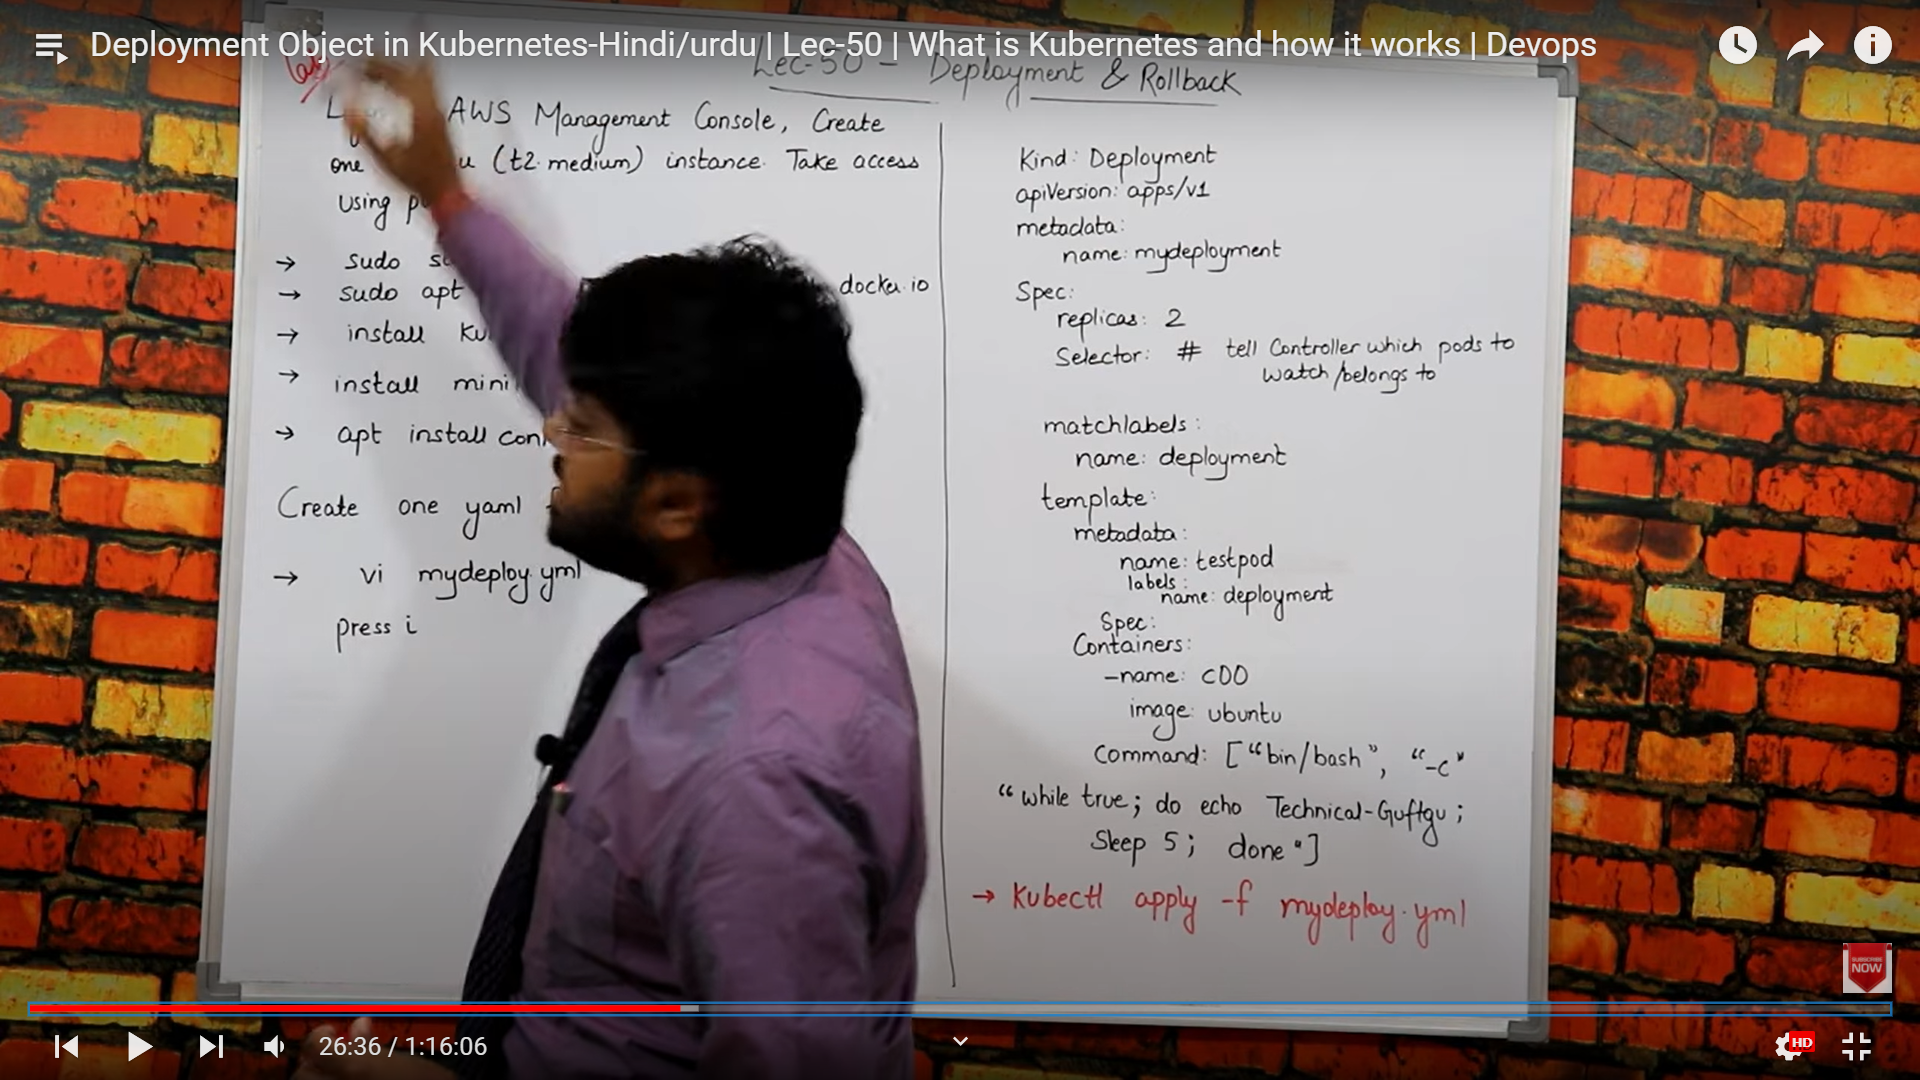 Deployment Object in Kubernetes-Hindi/urdu | Lec-50 | What is Kubernetes and how it works | Devops
Lec-50 - Deployment & Rollback
AWS Management Console, Create
one (t2.medium) instance. Take access
using
→ sudo
→ sudo apt docker.io
→ install
→ install
→ apt install
Create one yaml
→ vi mydeploy.yml
press i
Kind: Deployment
apiVersion: apps/v1
metadata:
name: mydeployment
Spec:
replicas: 2
Selector: # tell Controller which pods to
watch/belongs to
matchlabels:
name: deployment
template:
metadata:
name: testpod
labels:
name: deployment
Spec:
Containers:
-name: c00
image: ubuntu
Command: ["bin/bash", "-c"
"while true; do echo Technical-Guftgu;
Sleep 5; done"]
→ Kubectl apply -f mydeploy.yml
SUBSCRIBE
NOW
26:36 / 1:16:06
HD